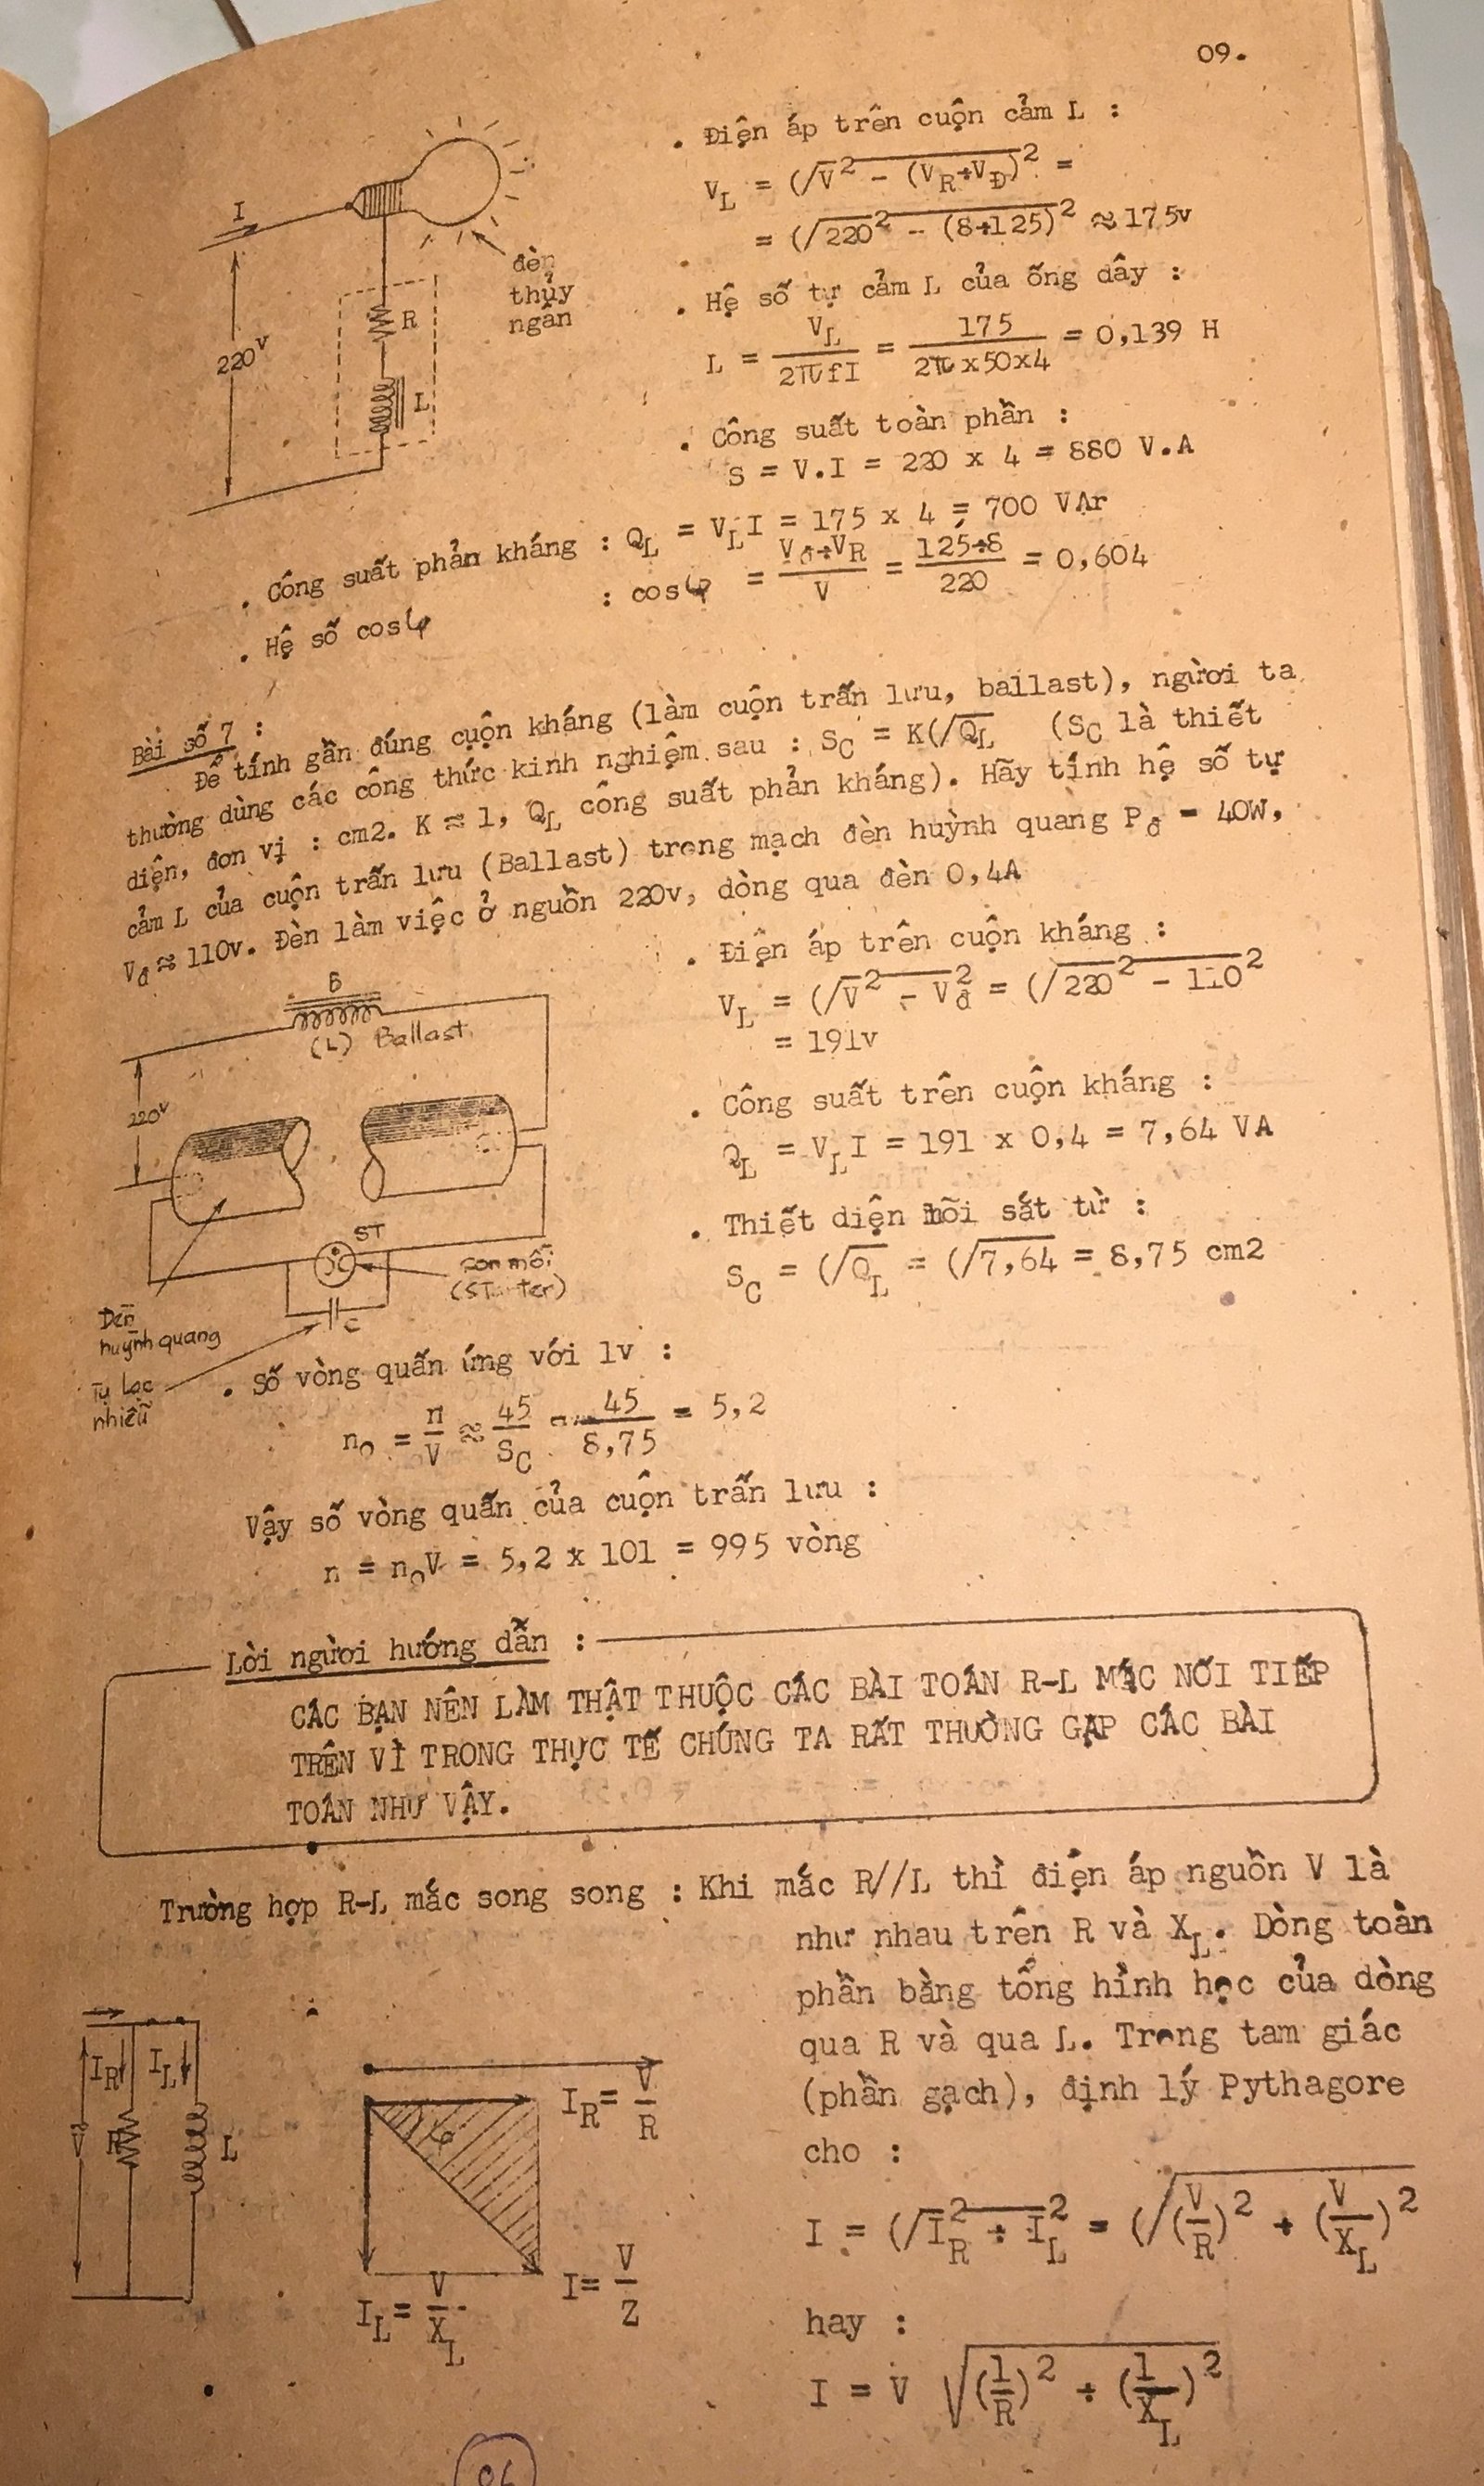 09.
I
220V
R
L
đèn
thủy
ngân
. Điện áp trên cuộn cảm L :
V_L = (√V² - (V_R+V_Đ)² =
= (√220² - (8+125)² ≈ 175v
. Hệ số tự cảm L của ống dây :
L = V_L / 2πfI = 175 / 2π x50x4 = 0,139 H
. Công suất toàn phần :
S = V.I = 220 x 4 = 880 V.A
. Công suất phản kháng : Q_L = V_L I = 175 x 4 = 700 VAr
. Hệ số cosφ : cosφ = V_đ+V_R / V = 125+8 / 220 = 0,604
Bài số 7 :
Để tính gần đúng cuộn kháng (làm cuộn trấn lưu, ballast), người ta
thường dùng các công thức kinh nghiệm sau : S_C = K(√Q_L (S_C là thiết
diện, đơn vị : cm2. K ≈ 1, Q_L công suất phản kháng). Hãy tính hệ số tự
cảm L của cuộn trấn lưu (Ballast) trong mạch đèn huỳnh quang P_đ = 40W,
V_đ ≈ 110v. Đèn làm việc ở nguồn 220v, dòng qua đèn 0,4A
B
(L) Ballast
220V
ST
con mồi
(Starter)
C
Đèn
huỳnh quang
Tụ lọc
nhiễu
. Điện áp trên cuộn kháng :
V_L = (√V² - V_đ² = (√220² - 110²
= 191v
. Công suất trên cuộn kháng :
Q_L = V_L I = 191 x 0,4 = 7,64 VA
. Thiết diện lõi sắt từ :
S_C = (√Q_L = (√7,64 = 8,75 cm2
. Số vòng quấn ứng với 1v :
n_o = n / V ≈ 45 / S_C = 45 / 8,75 = 5,2
Vậy số vòng quấn của cuộn trấn lưu :
n = n_o V = 5,2 x 101 = 995 vòng
Lời người hướng dẫn :
CÁC BẠN NÊN LÀM THẬT THUỘC CÁC BÀI TOÁN R-L MẮC NỐI TIẾP
TRÊN VÌ TRONG THỰC TẾ CHÚNG TA RẤT THƯỜNG GẶP CÁC BÀI
TOÁN NHƯ VẬY.
Trường hợp R-L mắc song song : Khi mắc R//L thì điện áp nguồn V là
như nhau trên R và X_L. Dòng toàn
phần bằng tổng hình học của dòng
qua R và qua L. Trong tam giác
(phần gạch), định lý Pythagore
cho :
I = (√I_R² + I_L² = (√(V/R)² + (V/X_L)²
hay :
I = V √(1/R)² + (1/X_L)²
I_R
I_L
V
R
L
φ
I_R = V/R
I_L = V/X_L
I = V/Z